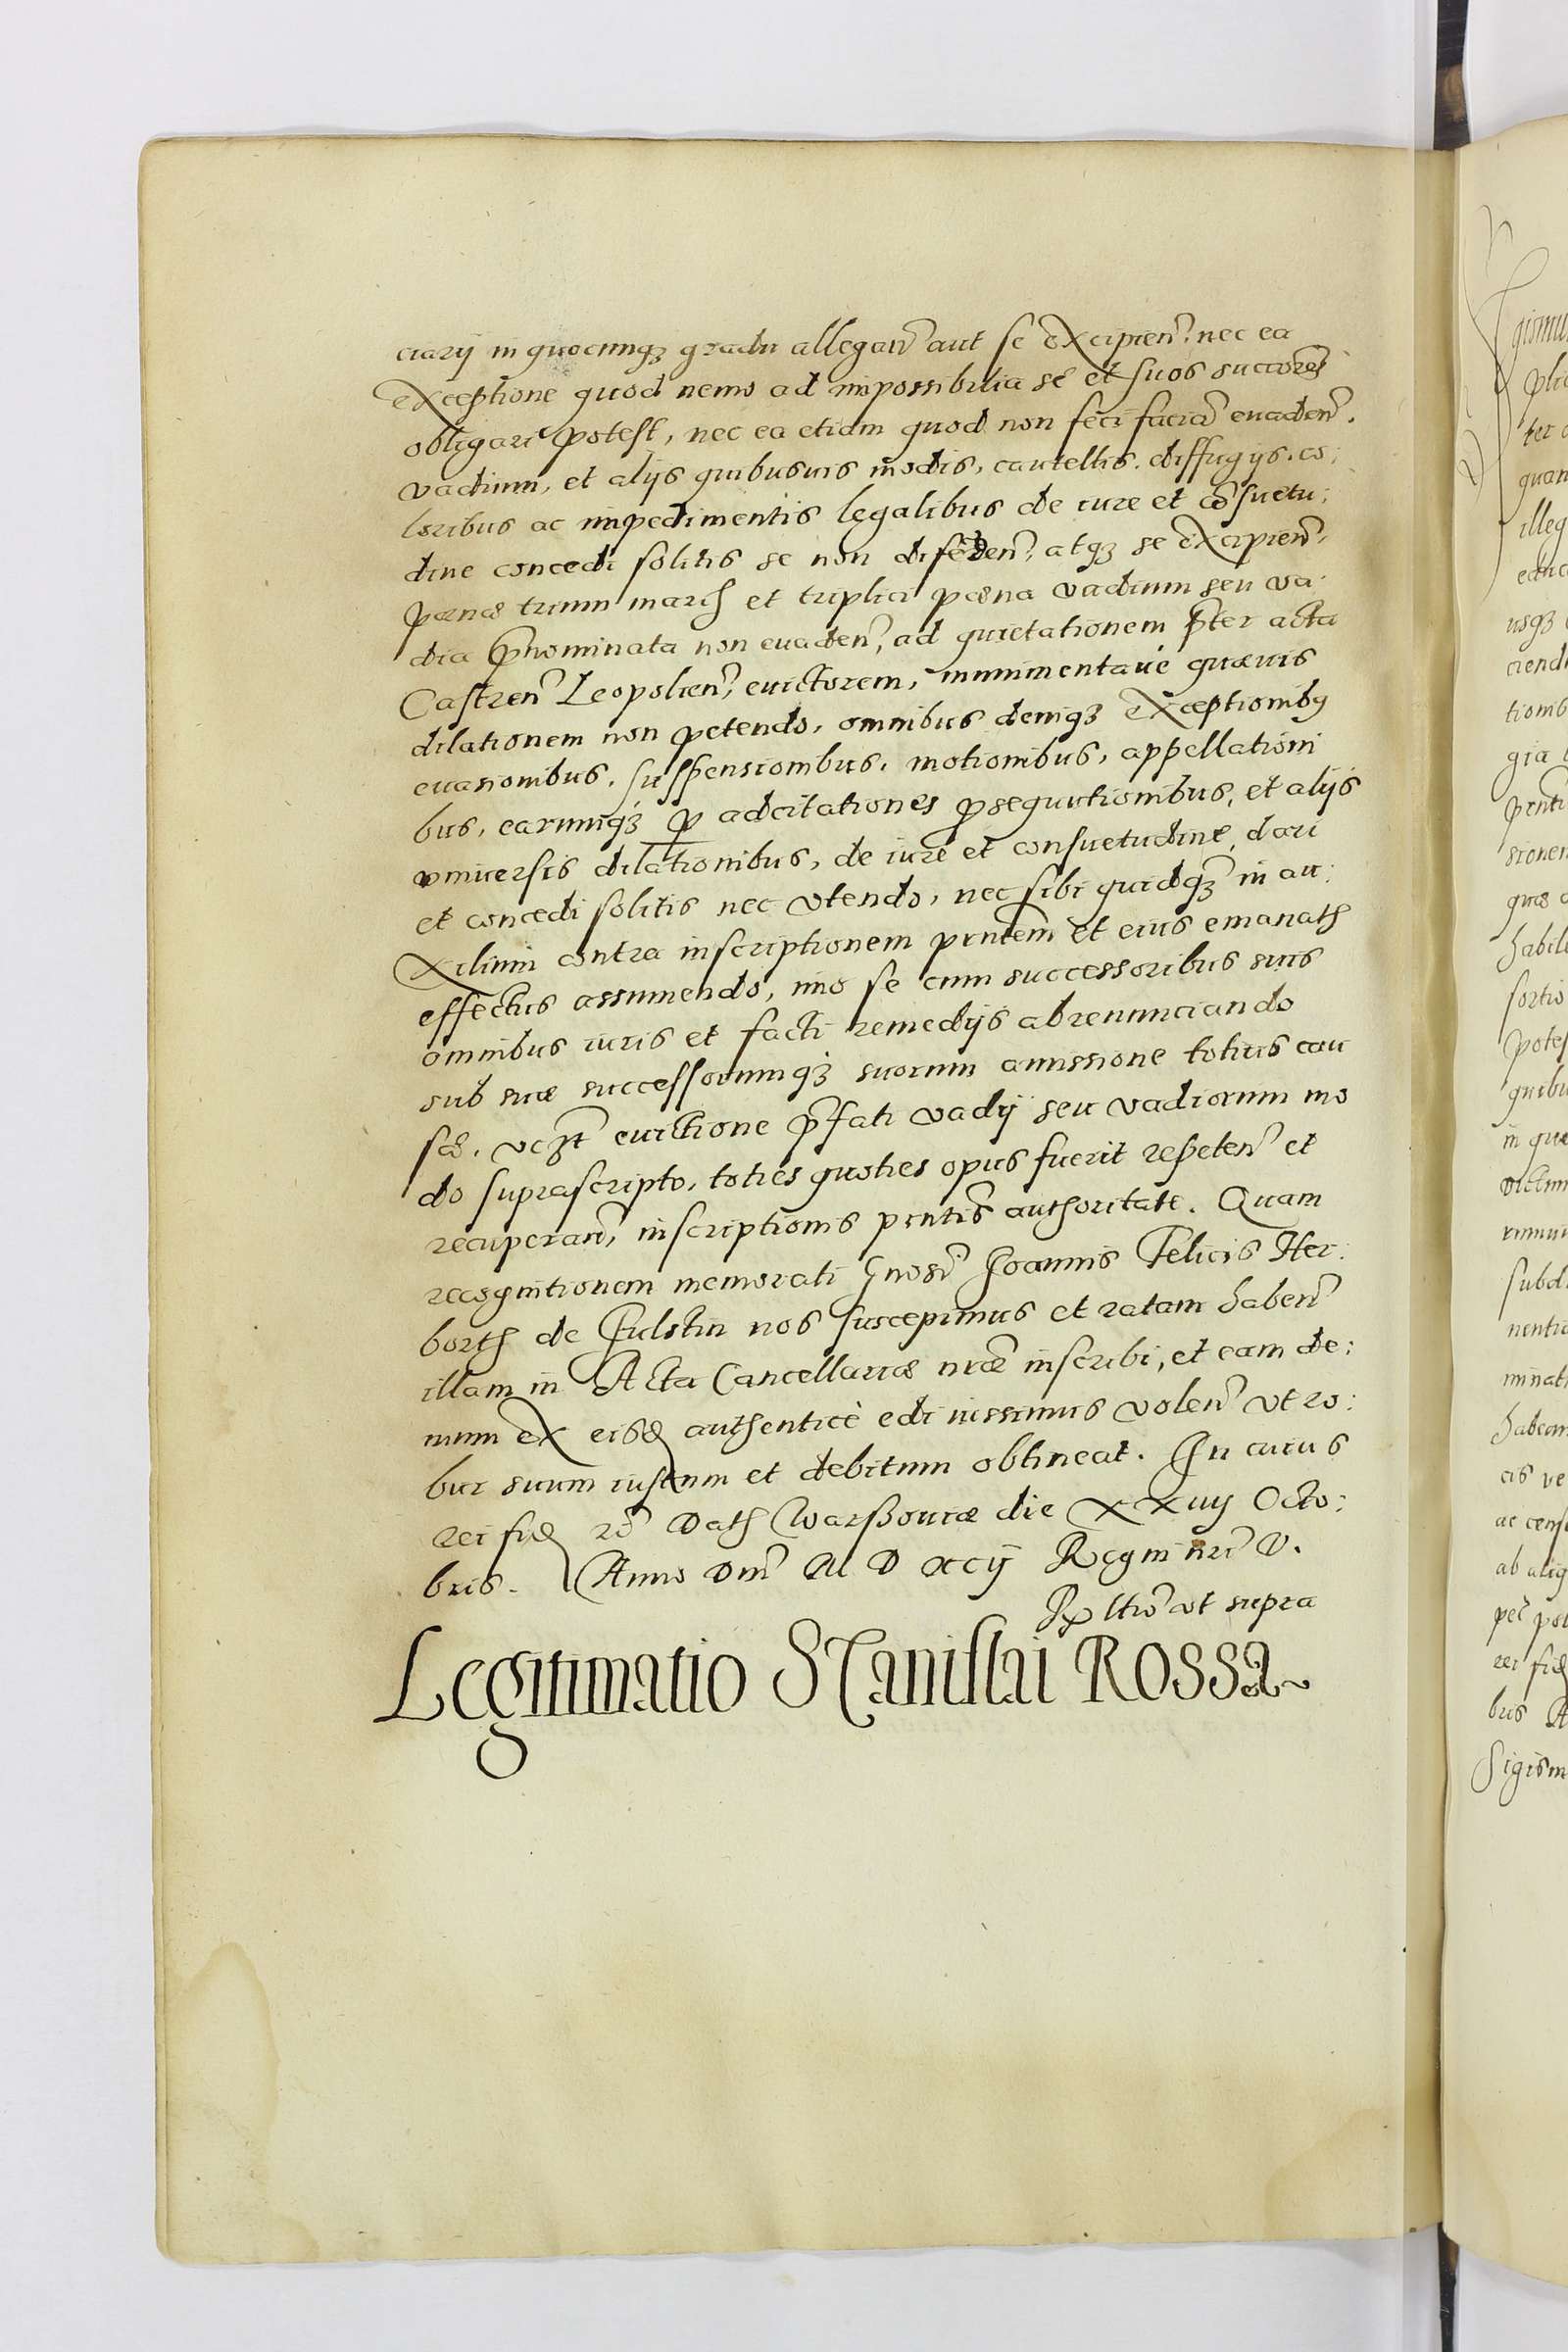 ciarij in quocunqȝ gradu allegan̄ aut se excipien̄. nec ea
exceptione quod nemo ad impossibilia se et suos succores
obligare potest, nec ea etiam quod non feci faciā euaden̄.
vadium, et alijs quibusuis modis, cautellis. diffugijs. co:
loribus ac impedimentis legalibus de iure et cōsuetu:
dine concedi solitis se non defeden̄, atqȝ se excipien̄,
pœnas trium march et triplici pœna vadium seu va:
dia p̄nominata non euaden̄, ad quietationem p̄ter acta
Castren̄ Leopolien̄, euictorem, munimentaue quæuis
dilationem non petendo, omnibus deniqȝ exceptionibꝰ
euasionibus, suspensionibus, motionibus, appellationi
bus, earumqȝ ꝑ adcitationes ꝓsequutionibus, et alijs
vniuersis dilationibus, de iure et consuetudine dari
et concedi solitis nec vtendo, nec sibi quidqȝ in au:
xilium contra inscriptionem pntem et eius emanath
effectus assumendo, imo se cum successoribus suis
omnibus iuris et facti remedijs abrenunciando
sub suæ successorumqȝ suorum amissione totius cau
sæ. vczt euictione p̄fati vadij seu vadiorum mo
do suprascripto, toties quoties opus fuerit repeten̄ et
recuperan̄, inscriptionis pntis authoritate. Quam
recognitionem memorati Gnosi Joannis Felicis Her:
borth de Fulstin nos suscepimus et ratam haben̄
illam in Acta Cancellariæ nræ inscribi, et eam de:
mum ex eisd authenticè edi iussimus volen̄ vt ro:
bur suum iustum et debitum obtineat. In cuius
rei fid rē Dath Warssouiæ die XXiiij Octo:
bris. Anno Dni M D XCij Regni nri V.
Rx ltio vt supra
Legitimatio Stanislai Rossa